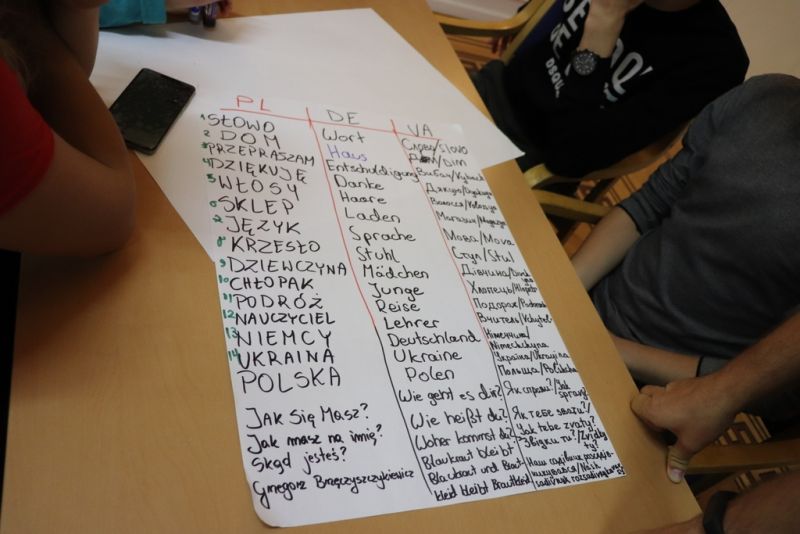 PL DE VA
1 SŁOWO Wort Слово/Slovo
2 DOM Haus Дім/Dim
3 PRZEPRASZAM Entschuldigung
4 DZIĘKUJĘ Danke Дякую
5 WŁOSY Haare Волосся
6 SKLEP Laden Магазин
7 JĘZYK Sprache Мова/Mova
8 KRZESŁO Stuhl Стул/Stul
9 DZIEWCZYNA Mädchen Дівчина
10 CHŁOPAK Junge Хлопець
11 PODRÓŻ Reise Подорож
12 NAUCZYCIEL Lehrer Вчитель/Vchytel
13 NIEMCY Deutschland Німеччина/Nimechchyna
14 UKRAINA Ukraine Україна/Ukrajina
POLSKA Polen Польща
Wie geht es dir? Як справи?/Jak spravy?
Jak Się Masz? Wie heißt du? Як тебе звати?/Jak tebe zvaty?
Jak masz na imię? Woher kommst du? Звідки ти?/Zvidky ty?
Skąd jesteś? Blaukraut bleibt
Grzegorz Brzęczyszczykiewicz Blaukraut und Braut-
kleid bleibt Brautkleid